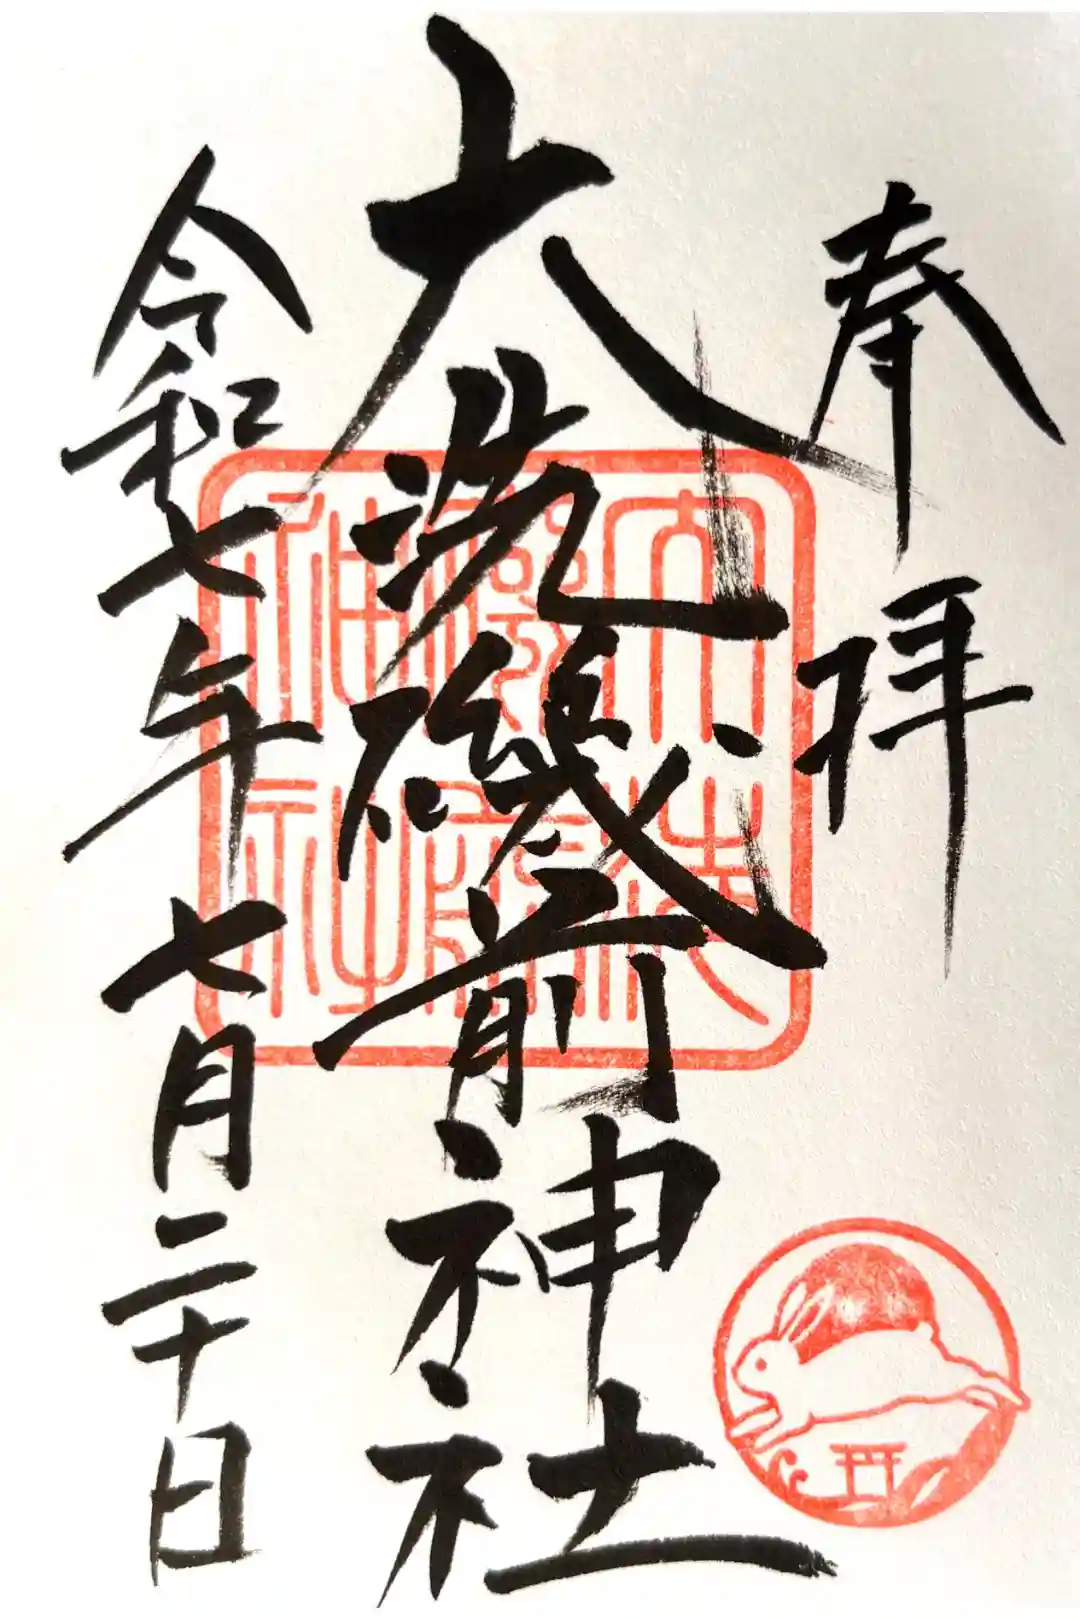 奉拝
大洗磯前神社
令和七年七月二十日
大洗
磯前
神社